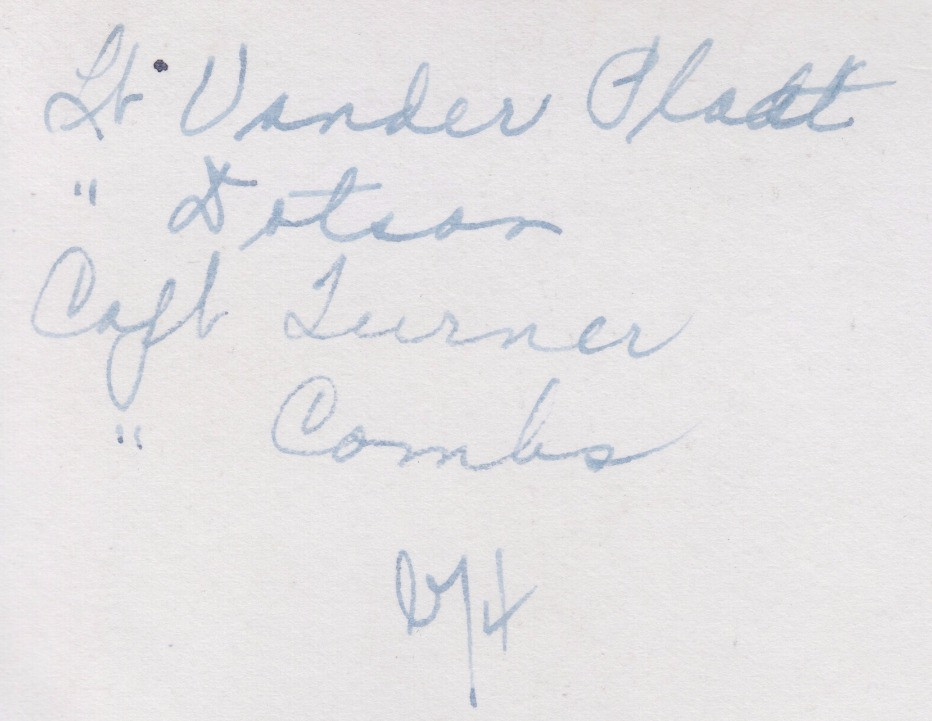 Lt Vander Pladt
" Dotson
Capt Turner
" Combs